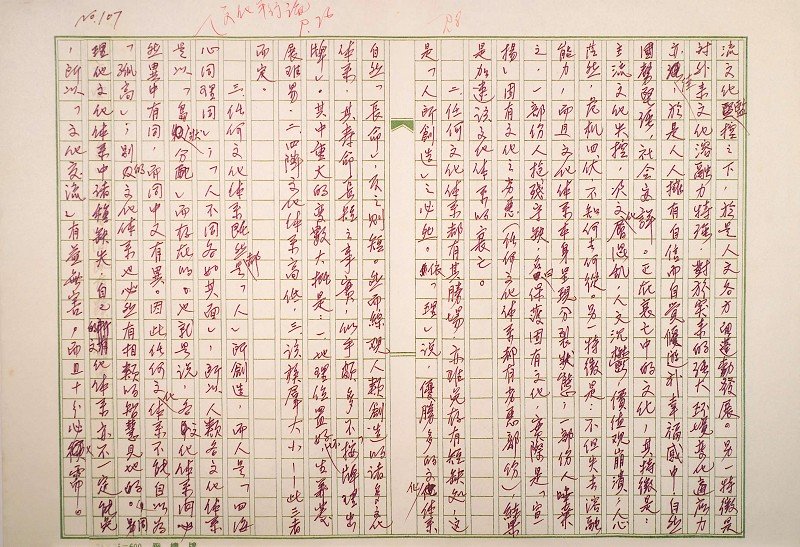 No.107
文化半行論 P.26
P.8
流文化監控之下，於是人文各方面蓬勃發展。另一特徵是
對外來文化溶融力特強，對於突來的強大環境變化適應力
亦強，於是人人擁有自信而自覺優越於幸福感中，自然
國勢強，社會安詳。正在衰亡中的文化，其特徵是：
主流文化失控，次文化層混亂，人文沉鬱，價值觀崩潰，人心
茫然，危机四伏不知何去何從。另一特徵是：不但失去溶融
能力，而且文化体系本身呈現分裂狀態，一部份人唾棄
之，一部份人抱殘守缺，名曰保護固有文化，實際是「宣
揚」固有文化之劣惡（任何文化体系都有劣惡部份）結果
是加速該文化体系的衰亡。
二、任何文化体系都有其勝場，亦难免存有短缺処，這
是「人所創造」之必然。依「理」說，優勝多的文化体系
自然「長命」，反之則短。然而綜观人類創造的諸多文化
体系，其壽命長短之事實，似乎頗多不「按牌理出
牌」。其中重大的变數大概是：一、地理位置好
展难易，二、四鄰文化体系高低，三、該族羣大小——此三者
而定。
三、任何文化体系既然都是「人」所創造，而人是「四海
心同理同」，「人不同各如其面」，所以人類各文化体系
是以「島狀分配」而存在的。也就是說，各文化体系间必
然異中有同，而同中又有異。因此任何文化体系不能自以為
「孤高」，別的文化体系也必然有相類似的智慧見地的。同
理他文化体系中諸種缺失，自己的文化体系亦不一定能免
，所以「文化交流」有益無害。而且十分必須。